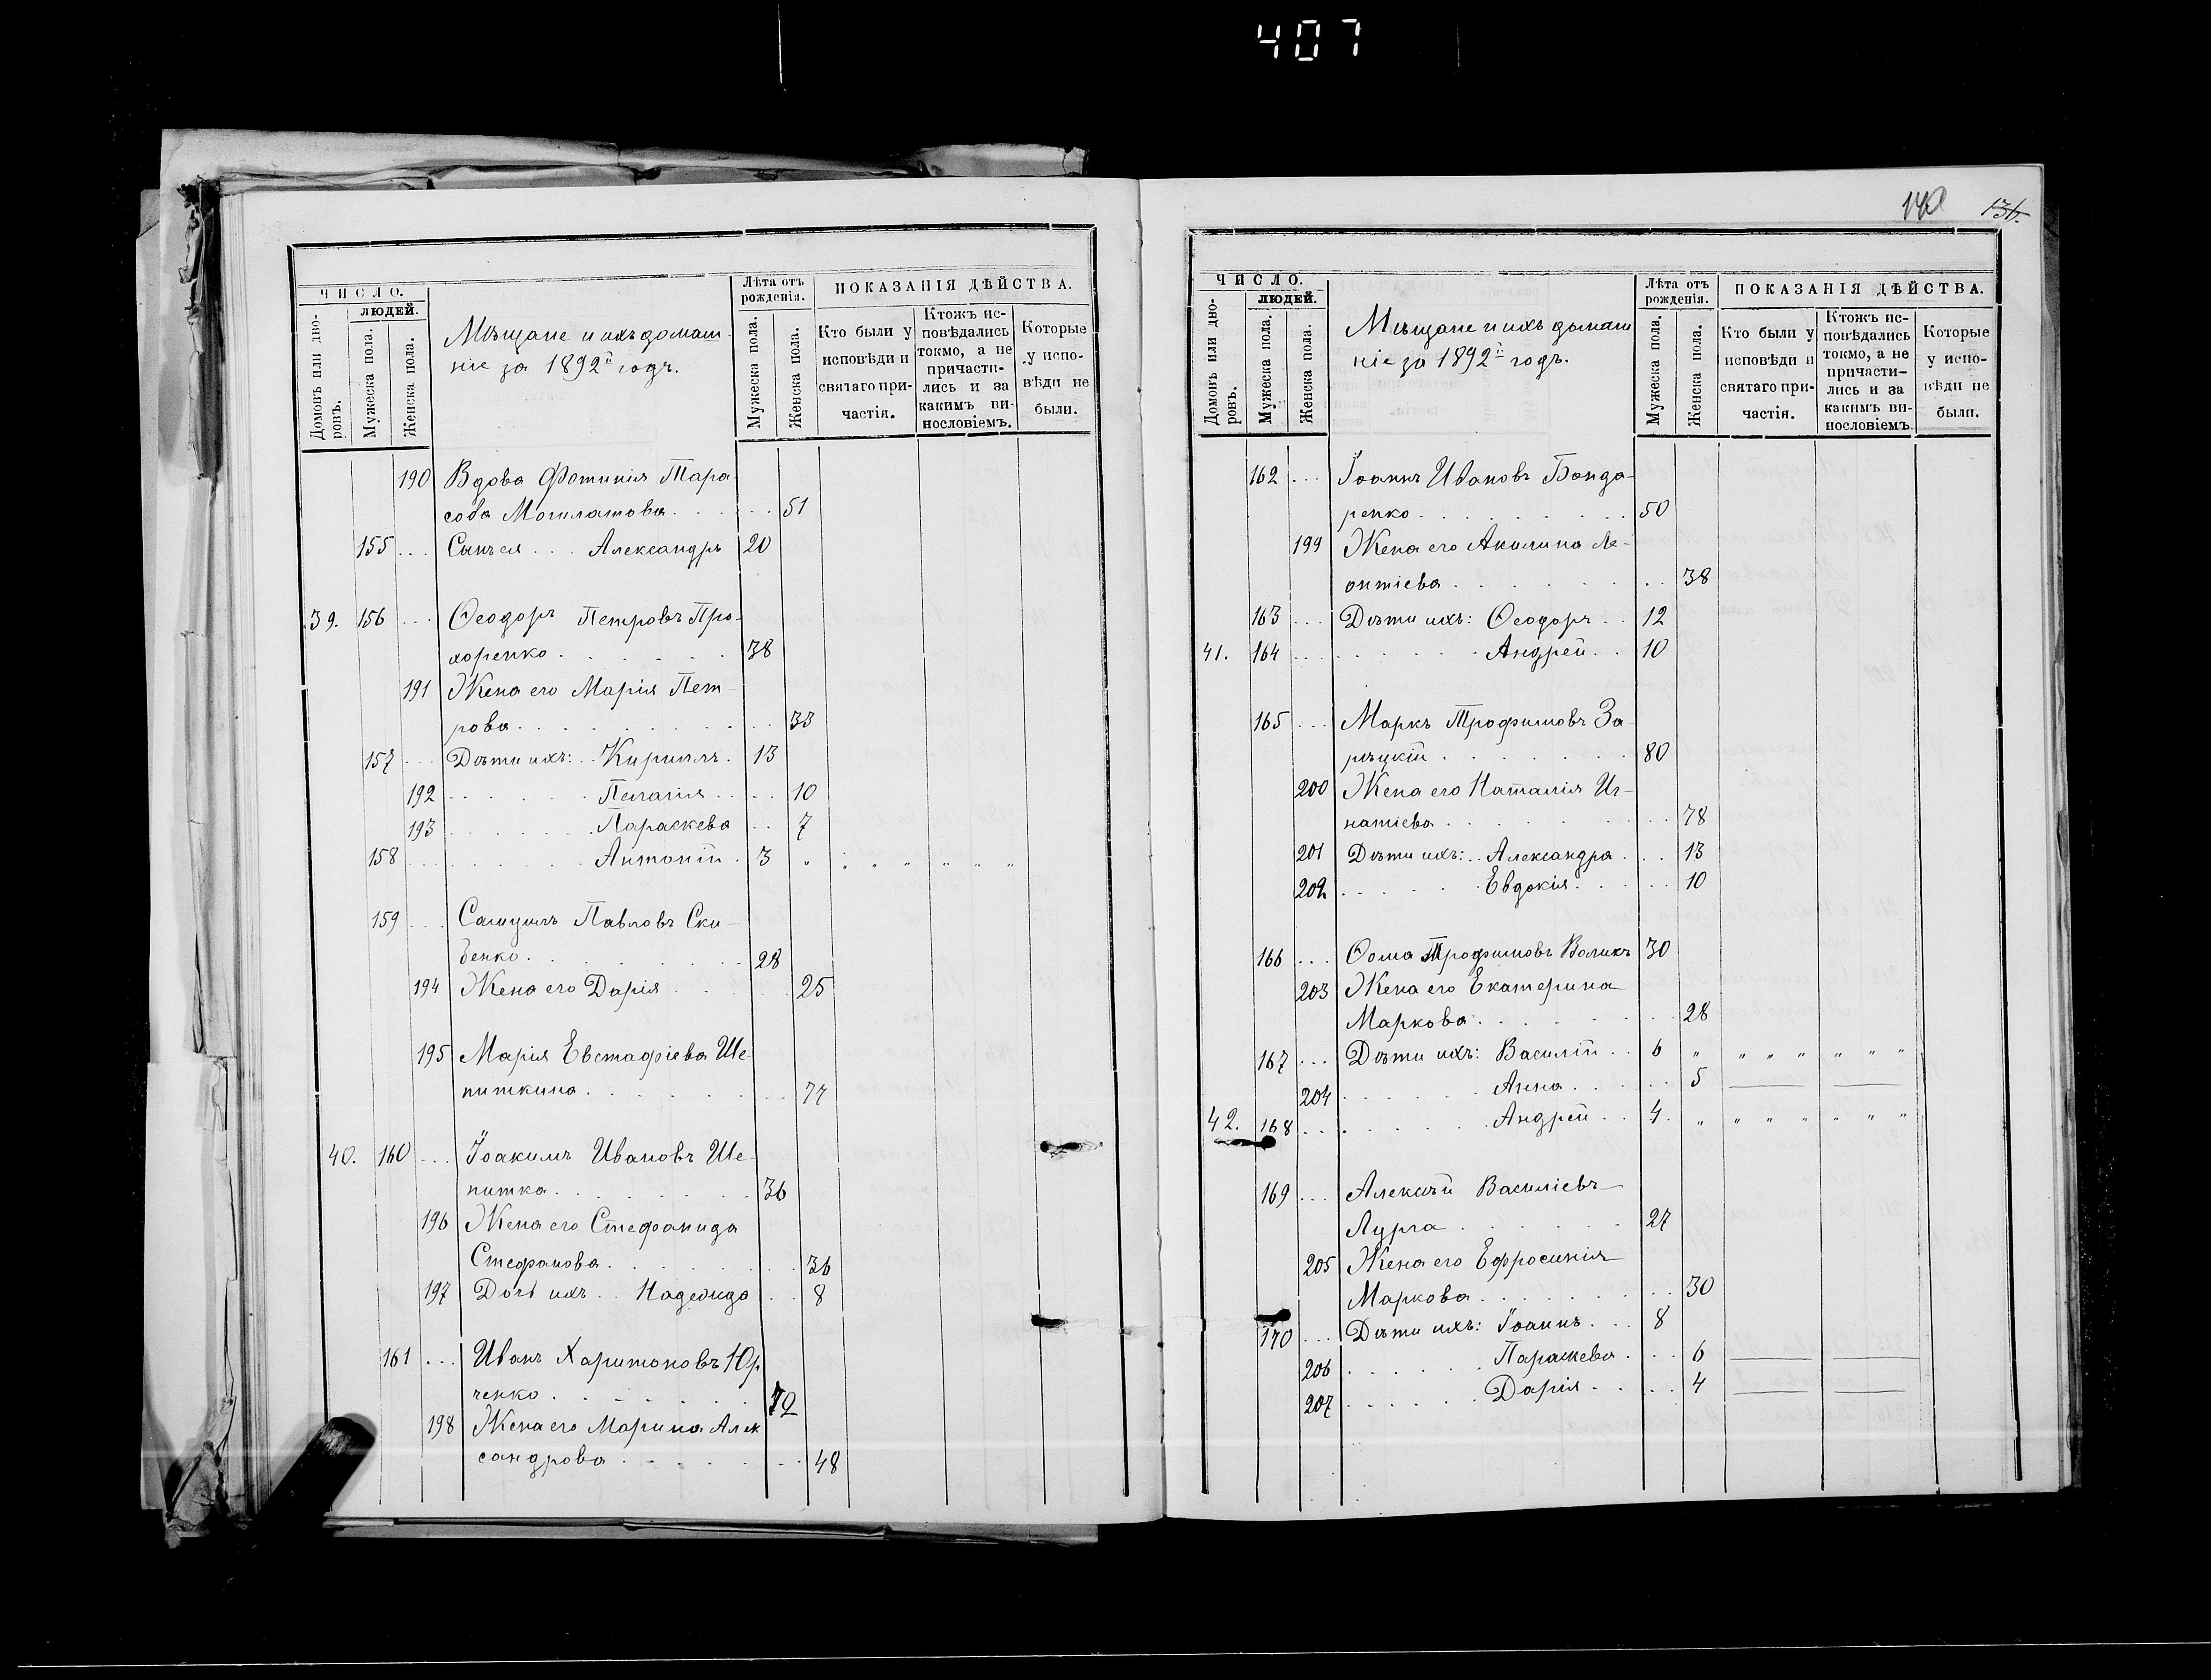 407
ЧИСЛО.
ЛЮДЕЙ.
Домовъ или дворовъ.
Мужеска пола.
Женска пола.
Мѣщане и ихъ домаш-
ніе за 1892й годъ.
Лѣта отъ
рожденія.
Мужеска пола.
Женска пола.
ПОКАЗАНІЯ ДѢЙСТВА.
Кто были у
исповѣди и
святаго при-
частія.
Ктожъ ис-
повѣдались
токмо, а не
причасти-
лись и за
какимъ ви-
нословіемъ.
Которые
у испо-
вѣди не
были.
190 Вдова Фотинія Тара-
сова Могилатова . . . . . . 51
155 . . . Сынъ ея . . . Александръ 20
39. 156 . . . Ѳеодоръ Петровъ Про-
хоренко . . . . . . 38
191 Жена его Марія Пет-
рова . . . . . . . . . 33
157 . . . Дѣти ихъ: . . Кириллъ . 13
192 . . . . . . Пелагія . . . . 10
193 . . . . . . Параскева . . 7
158 . . . . . . . . Антоній . 3 „ „ „ „ „ „ „
159 . . . Самуилъ Павловъ Ски-
бенко . . . . . . . 28
194 Жена его Дарія . . . . 25
195 Марія Евстафіева Ше-
питкина . . . . . . . . 77
40. 160 . . . Іоакимъ Ивановъ Ше-
питка . . . . . . . 36
196 Жена его Стефанида
Стефанова . . . . . . . 36
197 Дочь ихъ . . Надежда . . 8
161 . . . Иванъ Харитоновъ Юр-
ченко . . . . . . . 72
198 Жена его Марина Алек
сандрова . . . . . . . 48
140 136.
ЧИСЛО.
ЛЮДЕЙ.
Домовъ или дворовъ.
Мужеска пола.
Женска пола.
Мѣщане и ихъ домаш
ніе за 1892й годъ.
Лѣта отъ
рожденія.
Мужеска пола.
Женска пола.
ПОКАЗАНІЯ ДѢЙСТВА.
Кто были у
исповѣди и
святаго при-
частія.
Ктожъ ис-
повѣдались
токмо, а не
причасти-
лись и за
какимъ ви-
нословіемъ.
Которые
у испо-
вѣди не
были.
162 . . . Іоаннъ Ивановъ Бонда-
ренко . . . . . . . . . 50
199 Жена его Акилина Ле-
онтіева . . . . . . . . 38
163 . . . Дѣти ихъ: Ѳеодоръ . . 12
41. 164 . . . . . . . . Андрей . . 10
165 . . . Маркъ Трофимовъ За-
рѣцкій . . . . . . . 80
200 Жена его Наталія Иг-
натіева . . . . . . . . 78
201 Дѣти ихъ: . . Александра . . . 13
202 . . . . . . Евдокія . . . . . 10
166 . . . Ѳома Трофимовъ Воликъ 30
203 Жена его Екатерина
Маркова . . . . . . . 28
167 . . . Дѣти ихъ: Василій . . 6 „ „ „ „ „ „ „
204 . . . . . . Анна . . . . . 5
42. 168 . . . . . . . . Андрей . . 4. „ „ „ „ „ „ „
169 . . . Алексѣй Василіевъ
Лурга . . . . . . . 27
205 Жена его Ефросинія
Маркова . . . . . . . . 30
170 . . . Дѣти ихъ: Іоаннъ . . . 8
206 . . . . . . Параскева . . . . 6
207 . . . . . . Дарія . . . . . 4